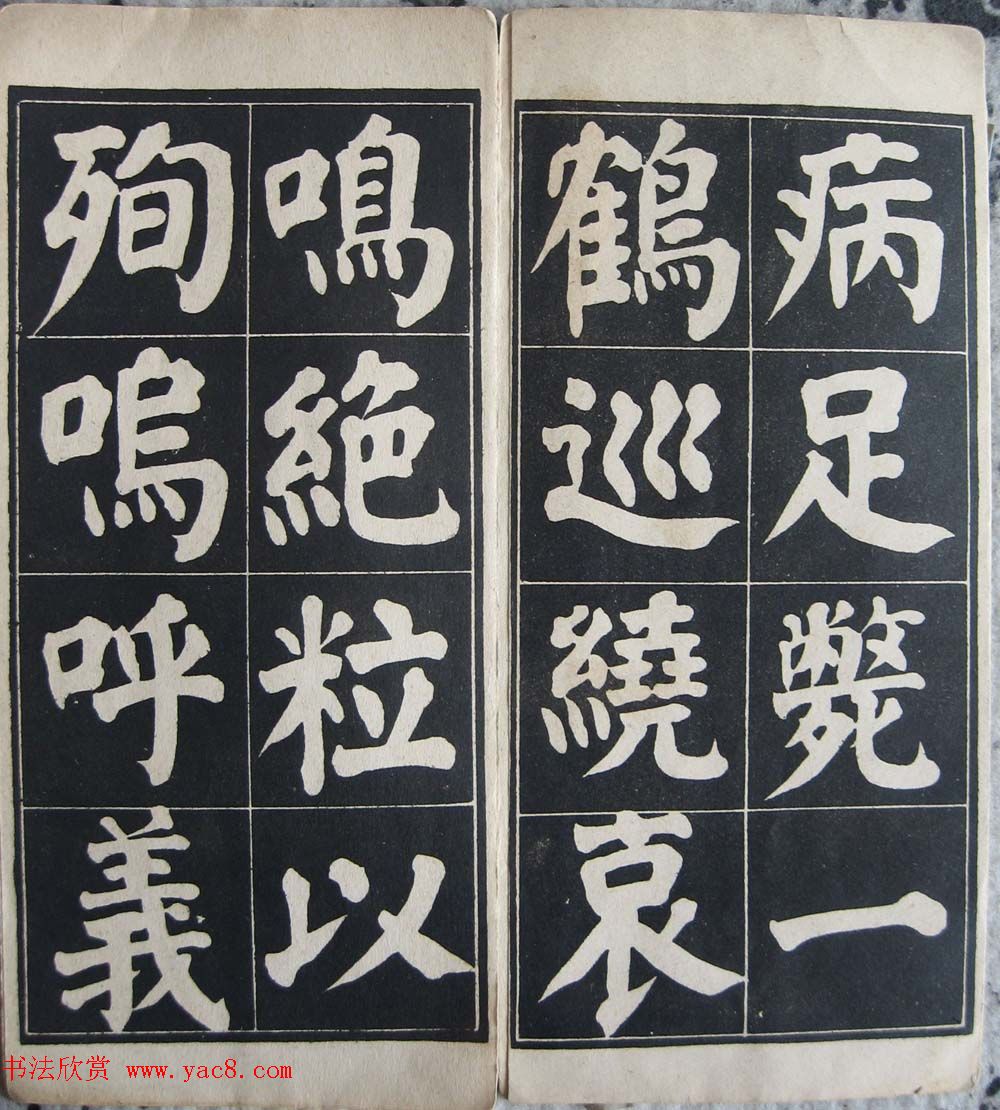 病足斃一
鶴巡繞哀
鳴絕粒以
殉嗚呼義
书法欣赏 www.yac8.com